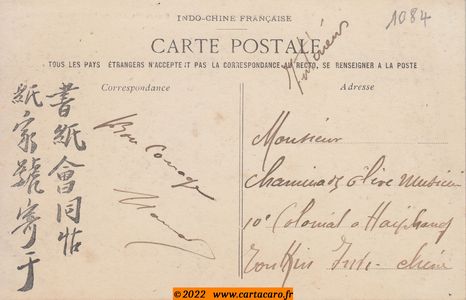 INDO-CHINE FRANÇAISE
1084
CARTE POSTALE
TOUS LES PAYS ÉTRANGERS N'ACCEPTENT PAS LA CORRESPONDANCE AU RECTO, SE RENSEIGNER A LA POSTE
Correspondance
Adresse
書紙會同
紙家號寄于
Bon Courage
Monsieur
10e Colonial a Haiphong
Tonkin Indo-chine
©2022 www.cartacaro.fr